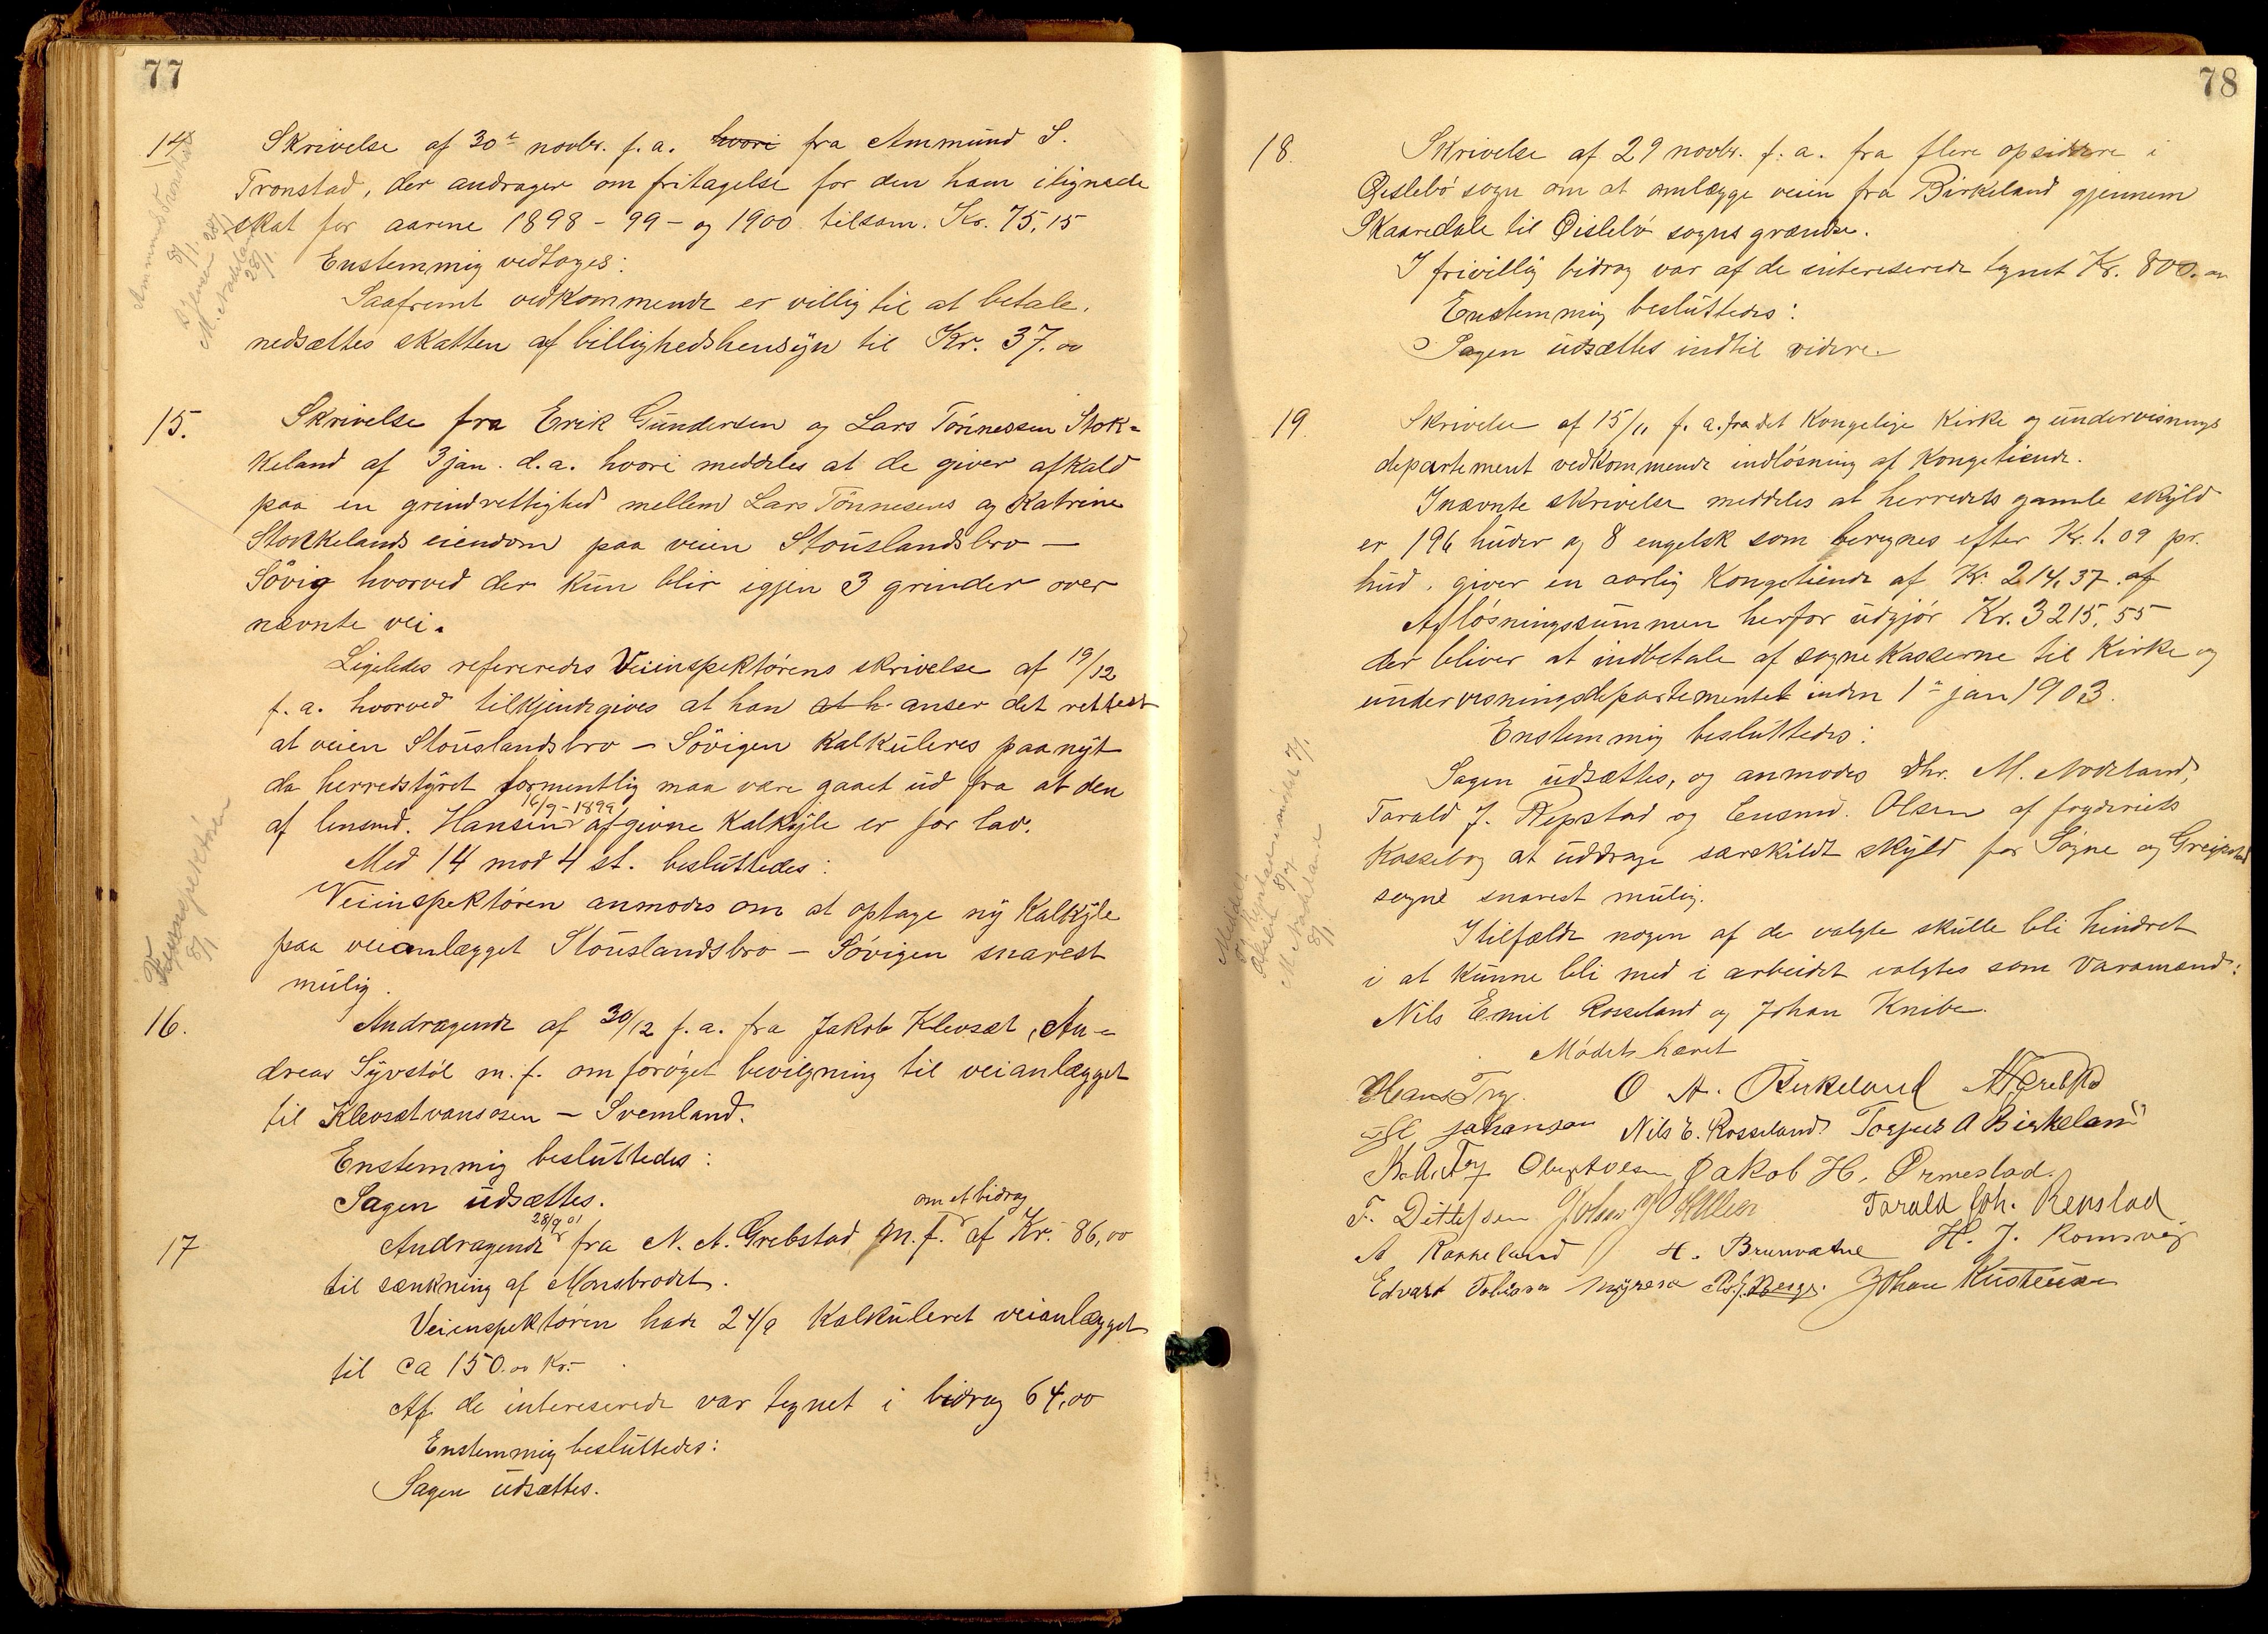 77
14 Skrivelse af 30te novbr. f. a. hvori fra Ammund S.
Tronstad, der andrager om fritagelse for den ham ilignede
skat for aarene 1898 - 99 - og 1900 tilsam. Kr. 75,15
Enstemmig vedtoges:
Saafremt vedkommende er villig til at betale,
nedsættes skatten af billighedshensyn til Kr. 37.00
Ammund Tronstad
8/1 28/1
M. Nodeland
28/1
15. Skrivelse fra Erik Gundersen og Lars Tönnessen Stok-
keland af 3 jan. d. a. hvori meddeles at de giver afkald
paa en grindrettighed mellem Lars Tönnesens og Katrine
Stokkelands eiendom paa veien Stouslandsbro —
Sövig hvorved der kun blir igjen 3 grinder over
nævnte vei.
Ligeledes refereredes Veiinspektörens skrivelse af 19/12
f. a. hvorved tilkjendegives at han at h anser det rettest
at veien Stouslandsbro — Sövigen kalkuleres paa nyt
da herredstyret formentlig maa være gaaet ud fra at den
af lensmd. Hansen 16/9-1899 afgivne kalkyle er for lav.
Med 14 mod 4 st. besluttedes:
Veiinspektören anmodes om at optage ny kalkyle
paa veianlægget Stouslandsbro — Sövigen snarest
mulig.
Veiinspektören
8/1
16. Andragende af 30/12 f. a. fra Jakob Klevsæt, An-
dreas Syvstöl m. f. om foröget bevilgning til veianlægget
til Klevsætvansosen — Svemland.
Enstemmig besluttedes:
Sagen udsættes.
17 Andragende 28/9 01 fra N. A. Grebstad m. f. om et bidrag af Kr. 86,00
til sænkning af Monsbrodet.
Veiinspektören hade 24/9 kalkuleret veianlægget
til ca 150.00 Kr.-
Af de intereserede var tegnet i bidrag 64,00
Enstemmig besluttedes:
Sagen udsættes.
78
18. Skrivelse af 29 novbr. f. a. fra flere opsiddere i
Öislebö sogn om at omlægge veien fra Birkeland gjennem
Skaaredale til Öislebö sogns grændse.
I frivillig bidrag var af de intereserede tegnet Kr. 800.00
Enstemmig besluttedes:
Sagen udsættes indtil videre.
19. Skrivelse af 15/11 f. a. fra det Kongelige Kirke og undervisnings
departement vedkommende indlösning af Kongetiende.
I nævnte skrivelse meddeles at herredets gamle skyld
er 196 huder og 8 engelsk som beregnes efter Kr. 1.09 pr.
hud, giver en aarlig Kongetiende af Kr. 214,37. af
Aflösningssummen herfor udgjör Kr. 3215,55
der bliver at indbetale af sognekasserne til Kirke og
undervisningsdepartementet inden 1te jan 1903.
Enstemmig besluttedes:
Sagen udsættes, og anmodes dhr. M. Nodeland,
Tarald J. Repstad og Lensmd. Olsen af fogderiets
kassebog at uddrage særskildt skyld for Sögne og Greipstad
sogne snarest mulig.
I tilfælde nogen af de valgte skulle bli hindret
i at kunne bli med i arbeidet valgtes som varamænd:
Nils Emil Rosseland og Johan Knibe.
M. Nodeland
8/1
Mödet hævet
Hans Try. O A. Birkeland N Grebstad
Johansen Nils E. Rosseland Torjus A Birkeland
K. A. Try Jakob H. Ormestad.
F. Ditlefsen Tarald Joh. Repstad
H. Brunvatne H. J. Romsvig
Edvart Tobiasen Johan Kristensen